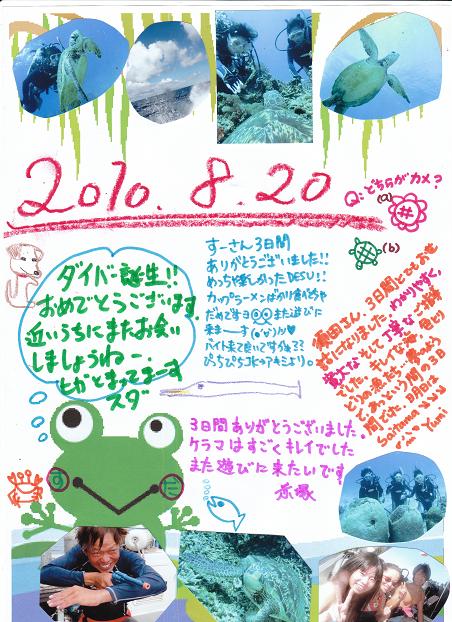 2010.8.20
Q:どちらがカメ?
(a)
(b)
ダイバー誕生!!
おめでとうございます
近いうちにまたお会い
しましょうねー.
ヒガとまってまーす
スダ
すーさん3日間
ありがとうございました!!
めっちゃ楽しかったDESU!!
カップラーメンばかり食べちゃ
だめですヨ また遊びに
来まーす
バイト来て良いですかぁ??
アキミより。
3日間ありがとうございました。
ケラマはすごくキレイでした
また遊びに来たいです!
須田さん、3日間とてもお世
話になりました。わかりやすく、
丁寧な
キレイな海、色とり
どりの魚たち、夢のよう
であっという間の3日
間でした。明日は
Saitama
Yumi
す
だ